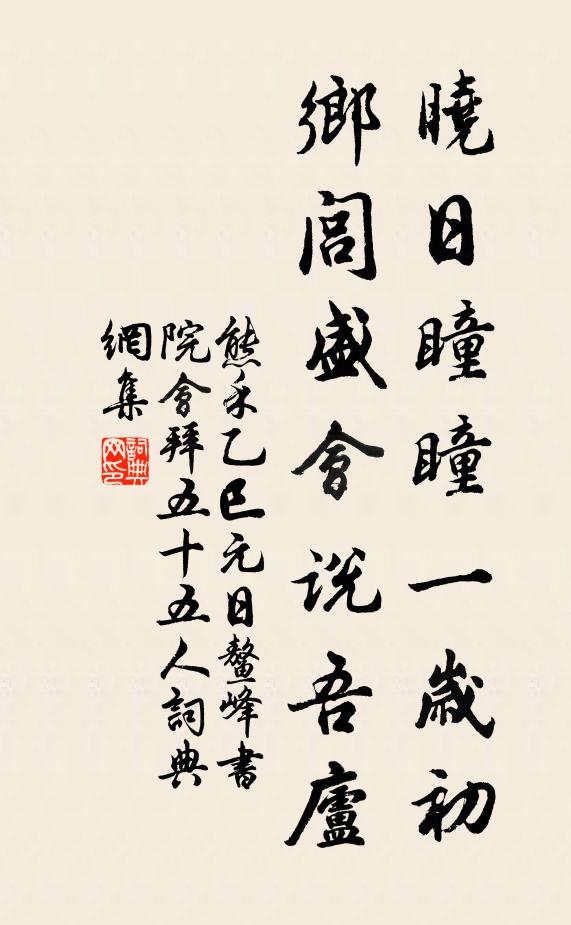 曉日曈曈一歲初
鄉閭盛會說吾廬
熊禾乙巳元日鰲峰書
院會拜五十五人詞典
網集
詞典
网印